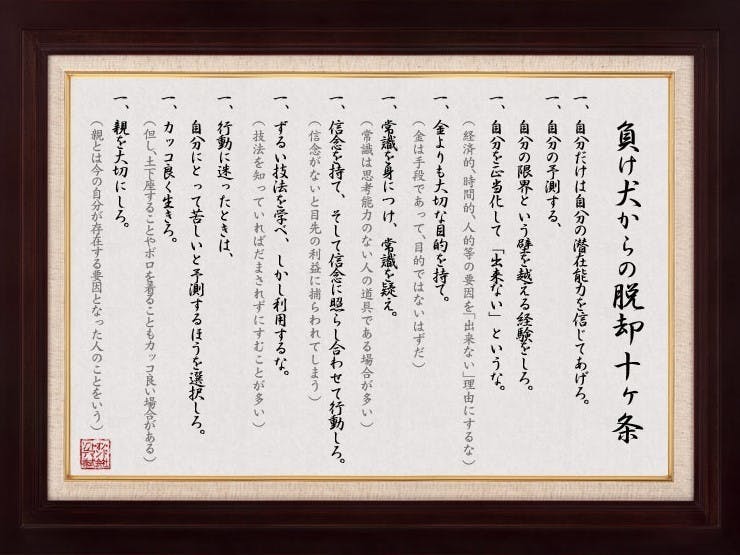 負け犬からの脱却十ヶ条
一、自分だけは自分の潜在能力を信じてあげろ。
一、自分の予測する、
自分の限界という壁を越える経験をしろ。
一、自分を正当化して「出来ない」というな。
（経済的、時間的、人的等の要因を「出来ない」理由にするな）
一、金よりも大切な目的を持て。
（金は手段であって、目的ではないはずだ）
一、常識を身につけ、常識を疑え。
（常識は思考能力のない人の道具である場合が多い）
一、信念を持て、そして信念に照らし合わせて行動しろ。
（信念がないと目先の利益に捕らわれてしまう）
一、ずるい技法を学べ、しかし利用するな。
（技法を知っていればだまされずにすむことが多い）
一、行動に迷ったときは、
自分にとって苦しいと予測するほうを選択しろ。
一、カッコ良く生きろ。
（但し、土下座することやボロを着ることもカッコ良い場合がある）
一、親を大切にしろ。
（親とは今の自分が存在する要因となった人のことをいう）